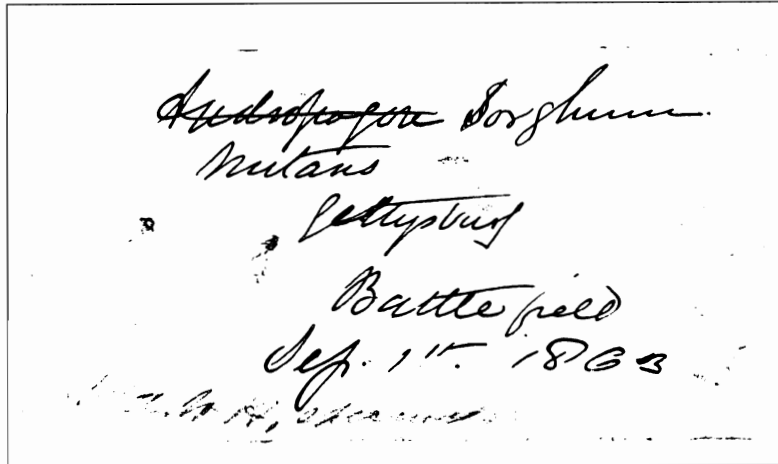 Andropogon Sorghum
nutans
Gettysburg
Battlefield
Sep. 1st. 1863